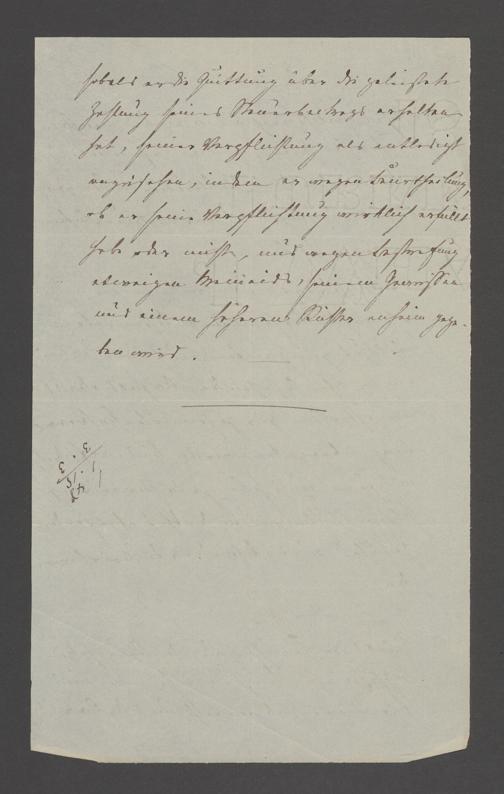 sobald er die Quittung über die geleistete
Zahlung seines Steuerbeitrags erhalten
hat, seiner Verpflichtung als entledigt
anzusehen, indem er wegen Beurtheilung,
ob er seine Verpflichtung wirklich erfüllt
habe oder nicht, und wegen Bestrafung
etwaigen Meineids, seinem Gewissen
und einem höheren Richter anheim gege-
ben wird.